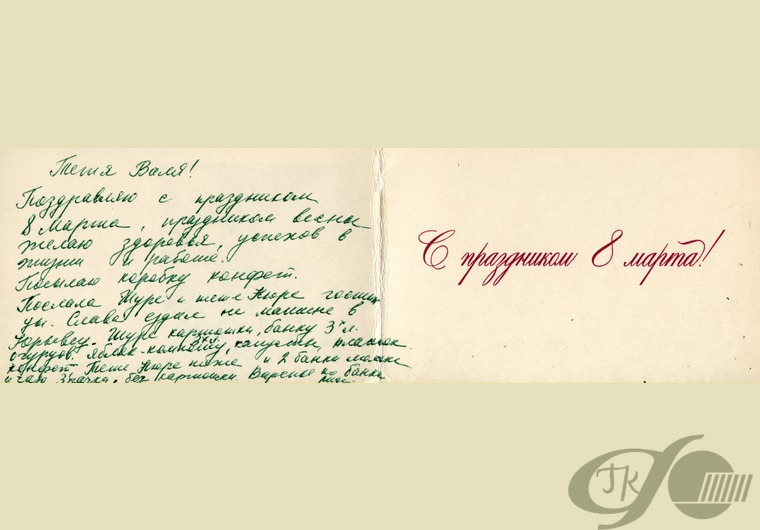 Тетя Валя!
Поздравляю с праздником
8 Марта, праздником весны
желаю здоровья, успехов в
жизни и работе.
Посылаю коробку конфет.
Послала Шуре и тете Нюре гостин
цы. Слава ездил на машине в
Юрьевец. Шуре картошки, банку 3х л.
огурцов, яблок-компот, капусты,
конфет. Тете Нюре тоже и 2 банки
и чаю 3 пачки, без картошки. Варенье по банке
С праздником 8 марта!
ГК